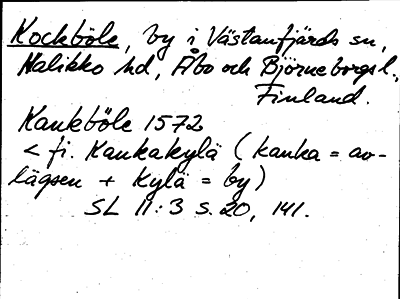 Kockböle, by i Västanfjärds sn,
Halikko hd, Åbo och Björneborgs l.,
Finland.
Kankböle 1572
< fi. Kankakylä (kanka = av-
lägsen + kylä = by)
SL 11:3 s. 20, 141.